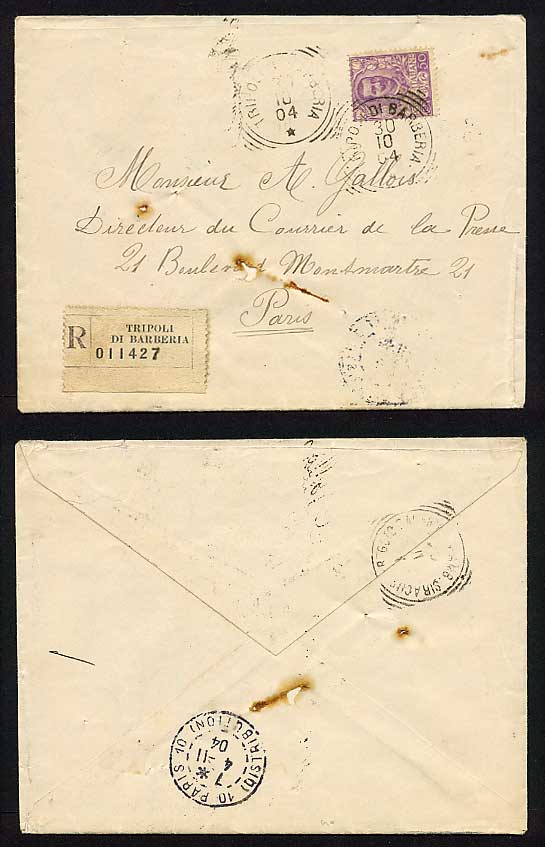 TRIPOLI DI BARBERIA
10
04
50
TRIPOLI DI BARBERIA
30
10
04
Monsieur A. Gallois
Directeur du Courrier de la Presse
21 Boulevard Montmartre 21
Paris
R
TRIPOLI
DI BARBERIA
011427
SIRACUS
10 PARIS 10
(DISTRIBUTION)
7
4 -11
04